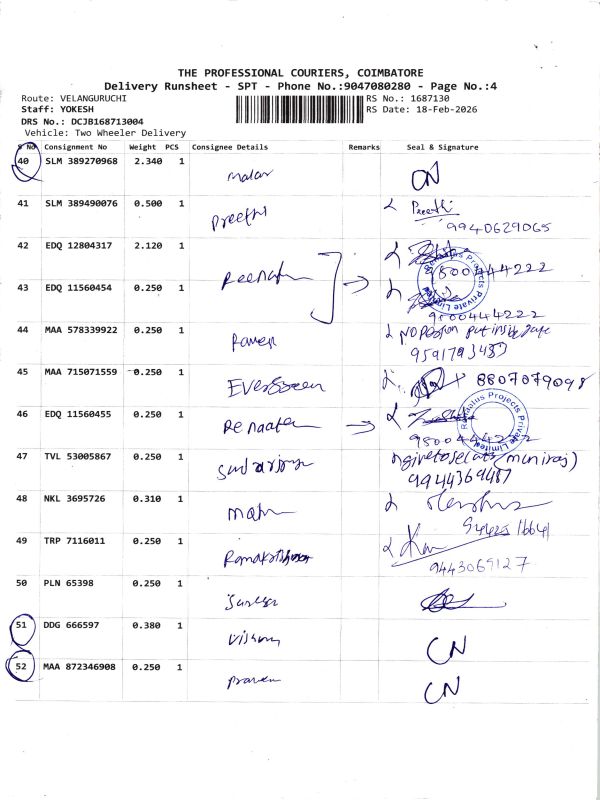 THE PROFESSIONAL COURIERS, COIMBATORE
Delivery Runsheet - SPT - Phone No.:9047080280 - Page No.:4
Route: VELANGURUCHI RS No.: 1687130
Staff: YOKESH RS Date: 18-Feb-2026
DRS No.: DCJB168713004
Vehicle: Two Wheeler Delivery
S No Consignment No Weight PCS Consignee Details Remarks Seal & Signature
40 SLM 389270968 2.340 1 malar CN
41 SLM 389490076 0.500 1 Preethi Preethi
9940629065
42 EDQ 12804317 2.120 1
9800444222
43 EDQ 11560454 0.250 1
9800444222
44 MAA 578339922 0.250 1 no person put inside gate
9591793487
45 MAA 715071559 0.250 1 Evergreen 8807079098
46 EDQ 11560455 0.250 1
9800444222
Renaatus Projects Private Limited
47 TVL 53005867 0.250 1 (muniraj)
9944369487
48 NKL 3695726 0.310 1
49 TRP 7116011 0.250 1 Ramakrishnan
9443069127
50 PLN 65398 0.250 1
51 DDG 666597 0.380 1 Vishnu CN
52 MAA 872346908 0.250 1 praveen CN